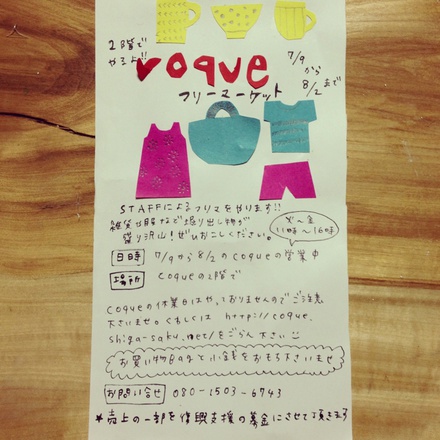 2階で
やるよ!!
coque
7/9
から
8/2まで
フリーマーケット
STAFFによるフリマをやります!!
雑貨や服など掘り出し物が
盛り沢山!ぜひおこしください。
火〜金
11時〜16時
日時 7/9から8/2のcoqueの営業中
場所 coqueの2階で
coqueの休業日はやっておりませんのでご注意
下さいませ。くわしくは http://coque.
shiga-saku.net/をごらん下さい
お買い物Bagと小銭をおもち下さいませ
お問い合せ 080-1503-6743
★売上の一部を復興支援の募金にさせて頂きます